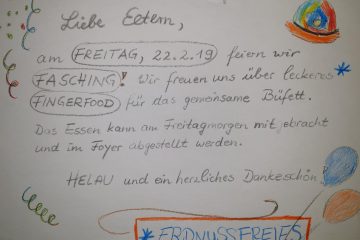 Liebe Eltern,
am FREITAG, 22.2.19 feiern wir
FASCHING! Wir freuen uns über leckeres*
FINGERFOOD für das gemeinsame Büfett.
Das Essen kann am Freitagmorgen mitgebracht
und im Foyer abgestellt werden.
HELAU und ein herzliches Dankeschön!
*ERDNUSSFREIES